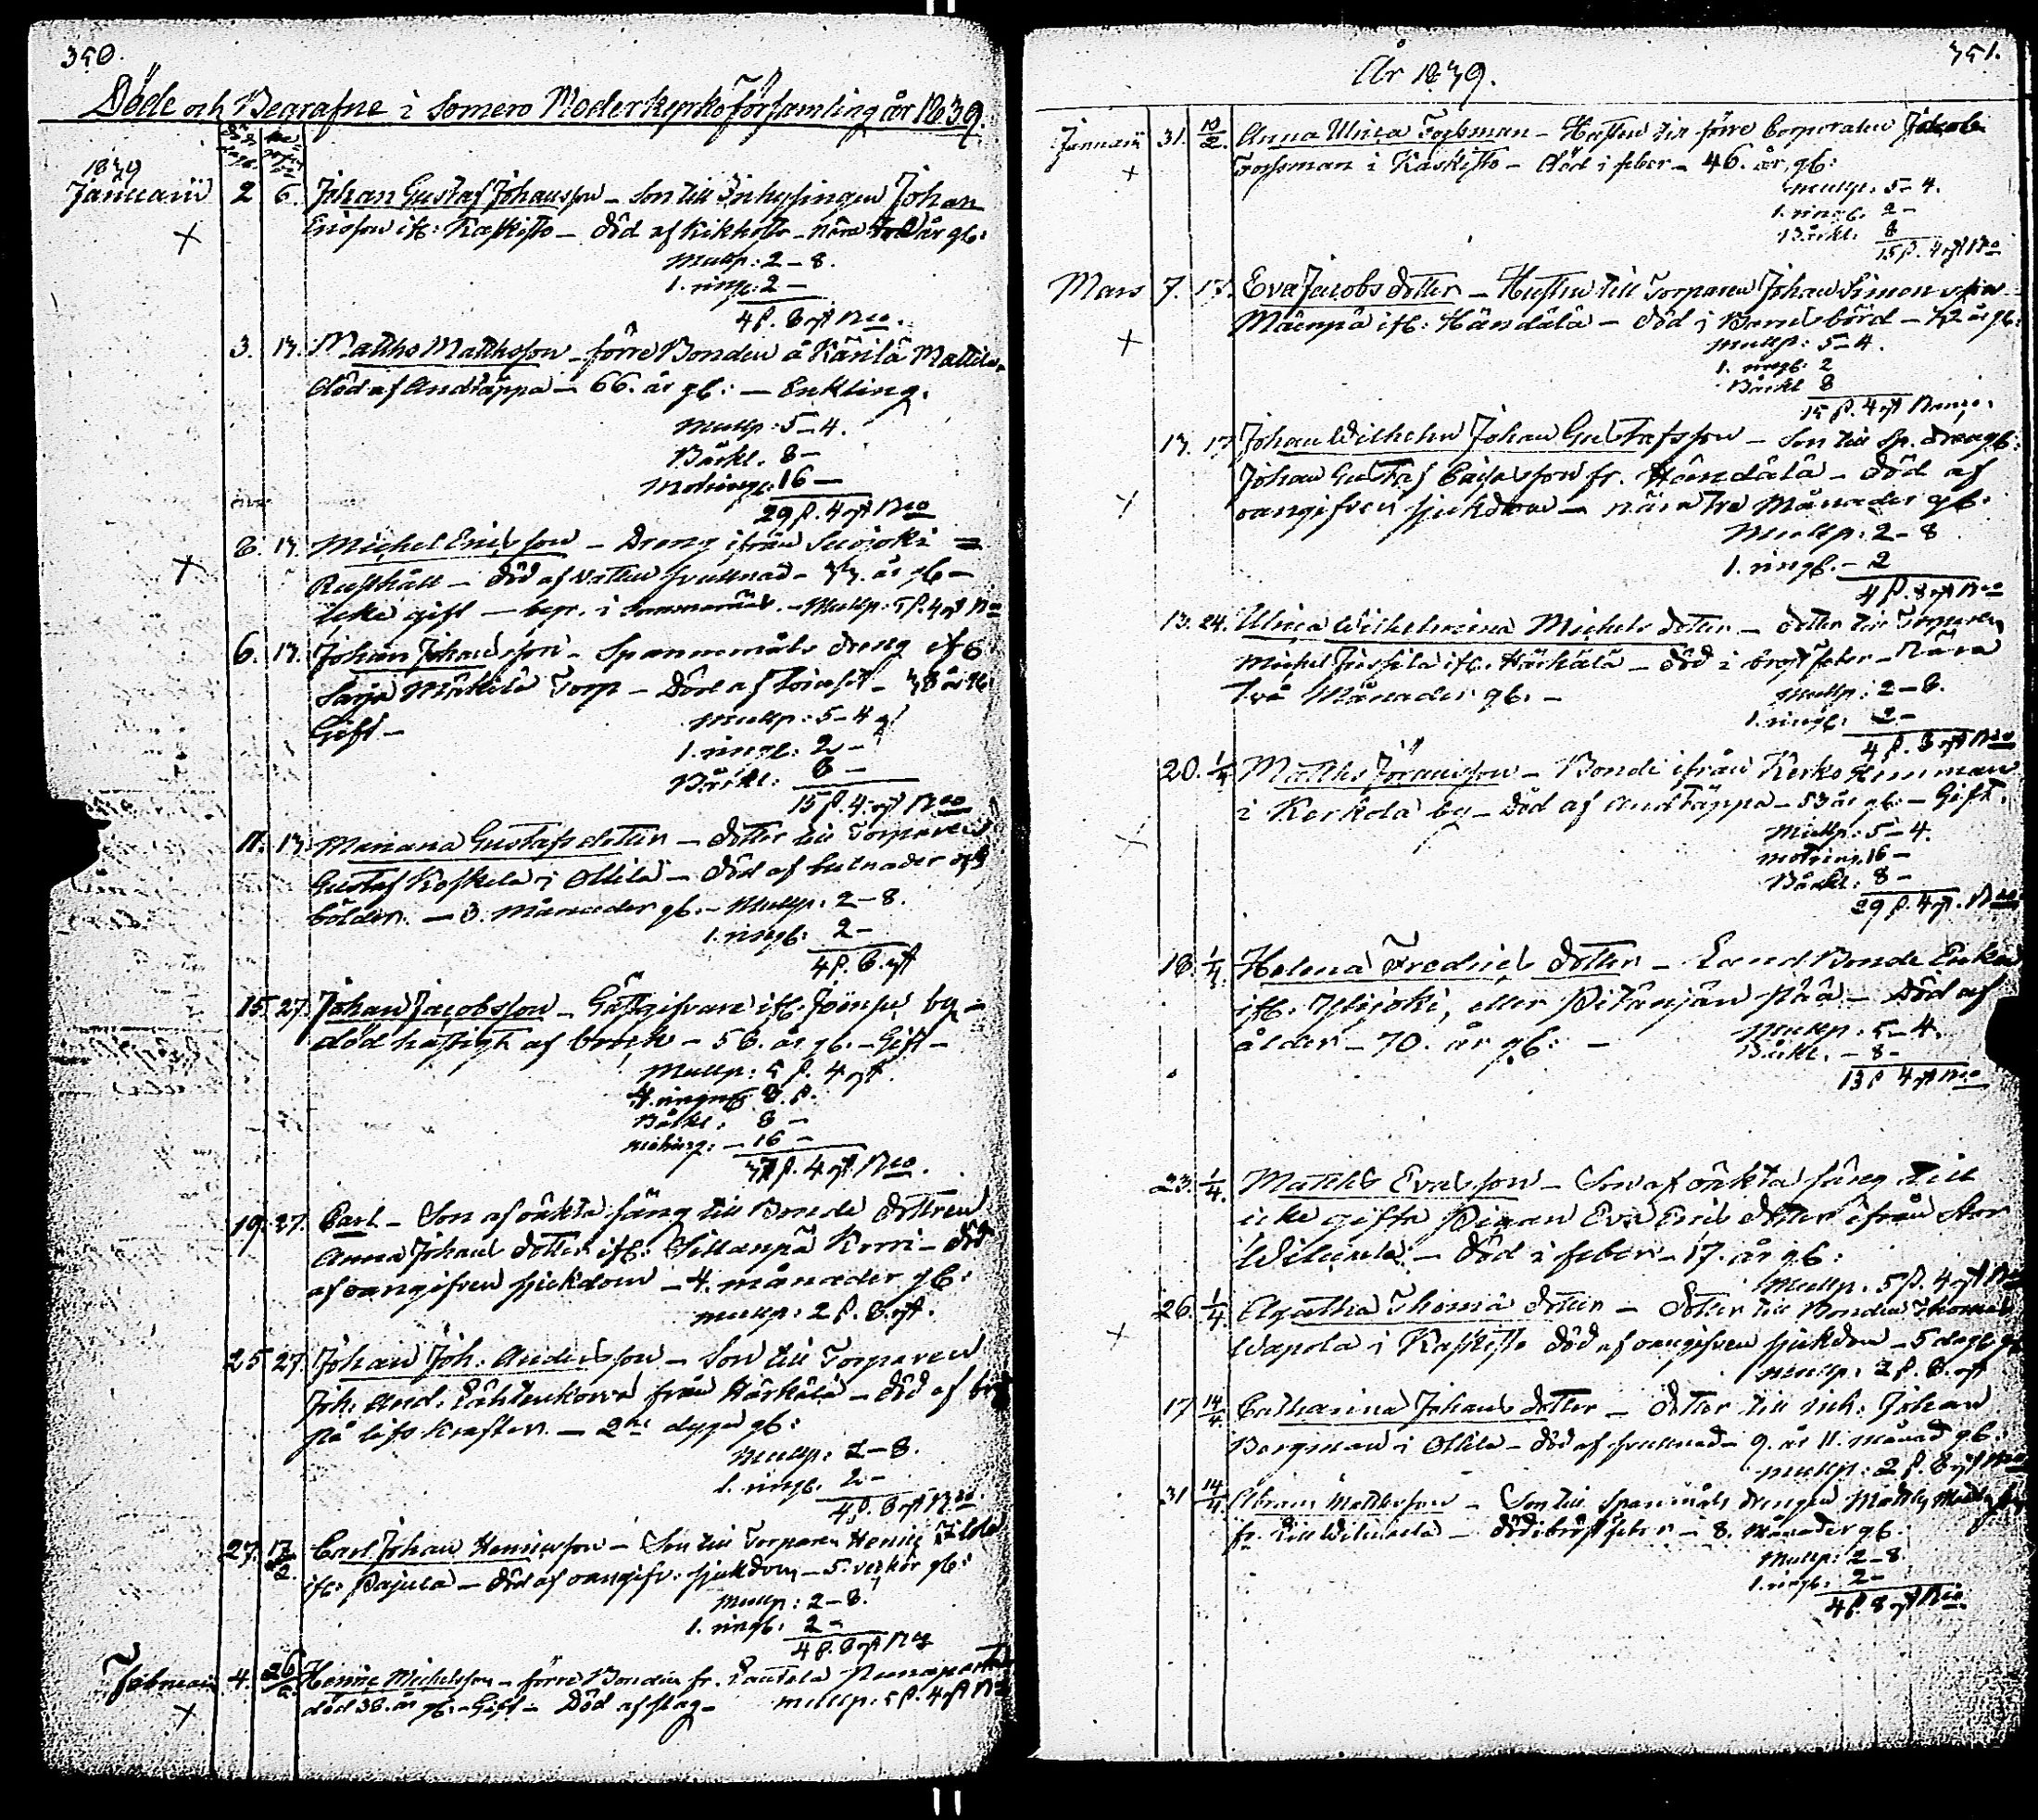 350.
Döde och Begrafne i Somero Moderkyrkoförsamling år 1839.
1839
Januarii 2 6. Johan Gustaf Johansson – Son till Inhysingen Johan
Ericsson ifr: Kaskisto – död af Kikhosta – nära två år gl:
Mullp: 2–8.
1. ringl: 2–
4 ß. 8 rst Bco.
3. 13. Matths Mattsson – förre Bonden å Känilä Mattila
död af Andtäppa – 66. år gl: – Enkling.
Mullp: 5–4.
Bårkl. 8–
16 –
29 ß. 4 rst Bco
6. 13. Michel Ericsson – Dreng ifrån Suojoki
Rusthåll – död af vatten svullnad – 33. år gl –
icke gift – begr. i – Mullp: 5 ß. 4 rst Bco
6. 13. Johan Johansson – Spannmåls dreng ifr:
Sarja Torp – Död af – 38 år gl:
Gift –
Mullp: 5–4
1. ringl: 2 –
Bårkl: 8 –
15 ß. 4 rst Bco
11. 13. Mariana Gustafsdotter – dotter till Torparen
Gustaf Koskela i Ollila – död af bulnader och
bölder. – 3. Månader gl. – Mullp. 2–8.
1. ringl: 2–
4 ß. 8 rst
15. 27. Johan Jacobsson – Gästgifvare ifr. by –
död hastigt af bråck – 56. år gl. – Gift –
Mullp: 5 ß. 4 rst.
4. ring 8 ß.
Bårkl: 8 –
– 16 –
37 ß. 4 rst Bco.
19. 27. Carl – Son af oäkta säng till Bonde Dottren
Anna Johans dotter ifr: Sillanpä – död
af oangifven sjukdom – 4. månader gl:
Mullp: 2 ß. 8 rst.
25 27. Johan Joh: Andersson – Son till Torparen
Joh: And: Lähteenkorva från Härkälä – död af brist
på lifs krafter. – 2ne dygn gl:
Mullp: 2–8.
1. ringl. 2–
4 ß. 8 rst Bco.
27. 17/2. Carl Johan Henricsson – Son till Torparen Henric
ifr: Pajula – död af oangifv: sjukdom – 5. veckor gl:
Mullp: 2–8.
1. ringl. 2–
4 ß. 8 rst Bco
Februarii 4. Henric Michelsson – förre Bonden fr. Lautela
död 38. år gl. – Gift – Död af slag – mullp: 5 ß. 4 rst Bco
351.
År 1839.
Januarii 31. 10/2. Anna Ulrica Forssman – Hustru till förre Corporalen Jakob
Forssman i Kaskisto – död i feber – 46. år gl:
Mullp: 5–4.
1. ringl. 2–
Bårkl: 8
15 ß. 4 rst Bco
Mars 7. 17. Eva Jacobs dotter – Hustru till Torparen Johan Simonsson
Mäenpä ifr: Händälä – död i Barnsbörd – 32 år gl:
Mullp: 5–4.
1. ringl: 2
Bårkl 8
15 ß. 4 rst Banco.
13. 17 Johan Wilhelm Johan Gustafsson – Son till Sp. drengl:
Johan Gustaf Carlsson fr. Händälä – död af
oangifven sjukdom – nära tre Månader gl:
Mullp: 2–8
1. ringl. – 2
4 ß. 8 rst Bco
13. 24. Ulrica Wilhelmina Michels dotter – dotter till Torparen
Michel ifr. Härkälä – död i bröstfeber – Nära
två Månader gl. –
Mullp: 2–8.
1. ringl: 2–
4 ß. 8 rst Bco
20. 1/4 Matths Göransson – Bonde ifrån Kerko Hemman
i Kerkola by – död af andtäppa – 53 år gl. – Gift.
Mullp: 5–4.
16 –
Bårkl: 8 –
29 ß. 4 rst. Bco
18. 1/4. Helena Fredrics dotter – Land Bonde Enka
ifr. Ylijoki, eller Pitkänjän – död af
ålder – 70. år gl: –
Mullp: 5–4.
Bårkl. – 8–
13 ß 4 rst Bco
23. 1/4. Matths Evasson – Son af oäkta säng till
icke gifta Pigan Eva Erics dotter ifrån Stor
– död i feber – 17. år gl:
Mullp. 5 ß. 4 rst Bco
26. 1/4 Agatha Thomæ dotter – dotter till Bonden Thomas
Wapola i Kaskisto död af oangifven sjukdom – 5 dagar gl
Mullp: 2 ß. 8 rst
17 14/4 Catharina Johans dotter – dotter till inh: Johan
Bergman i Ollila – död af svullnad – 9. år 11. månad gl.
Mullp: 2 ß. 8 rst Bco
31 14/4. Abram Mattsson – Son till Spanmåls drengen Matts
fr. Lill – död i bröstfeber – 8. Månader gl.
Mullp: 2–8.
1. ringl: 2–
4 ß. 8 rst Bco.